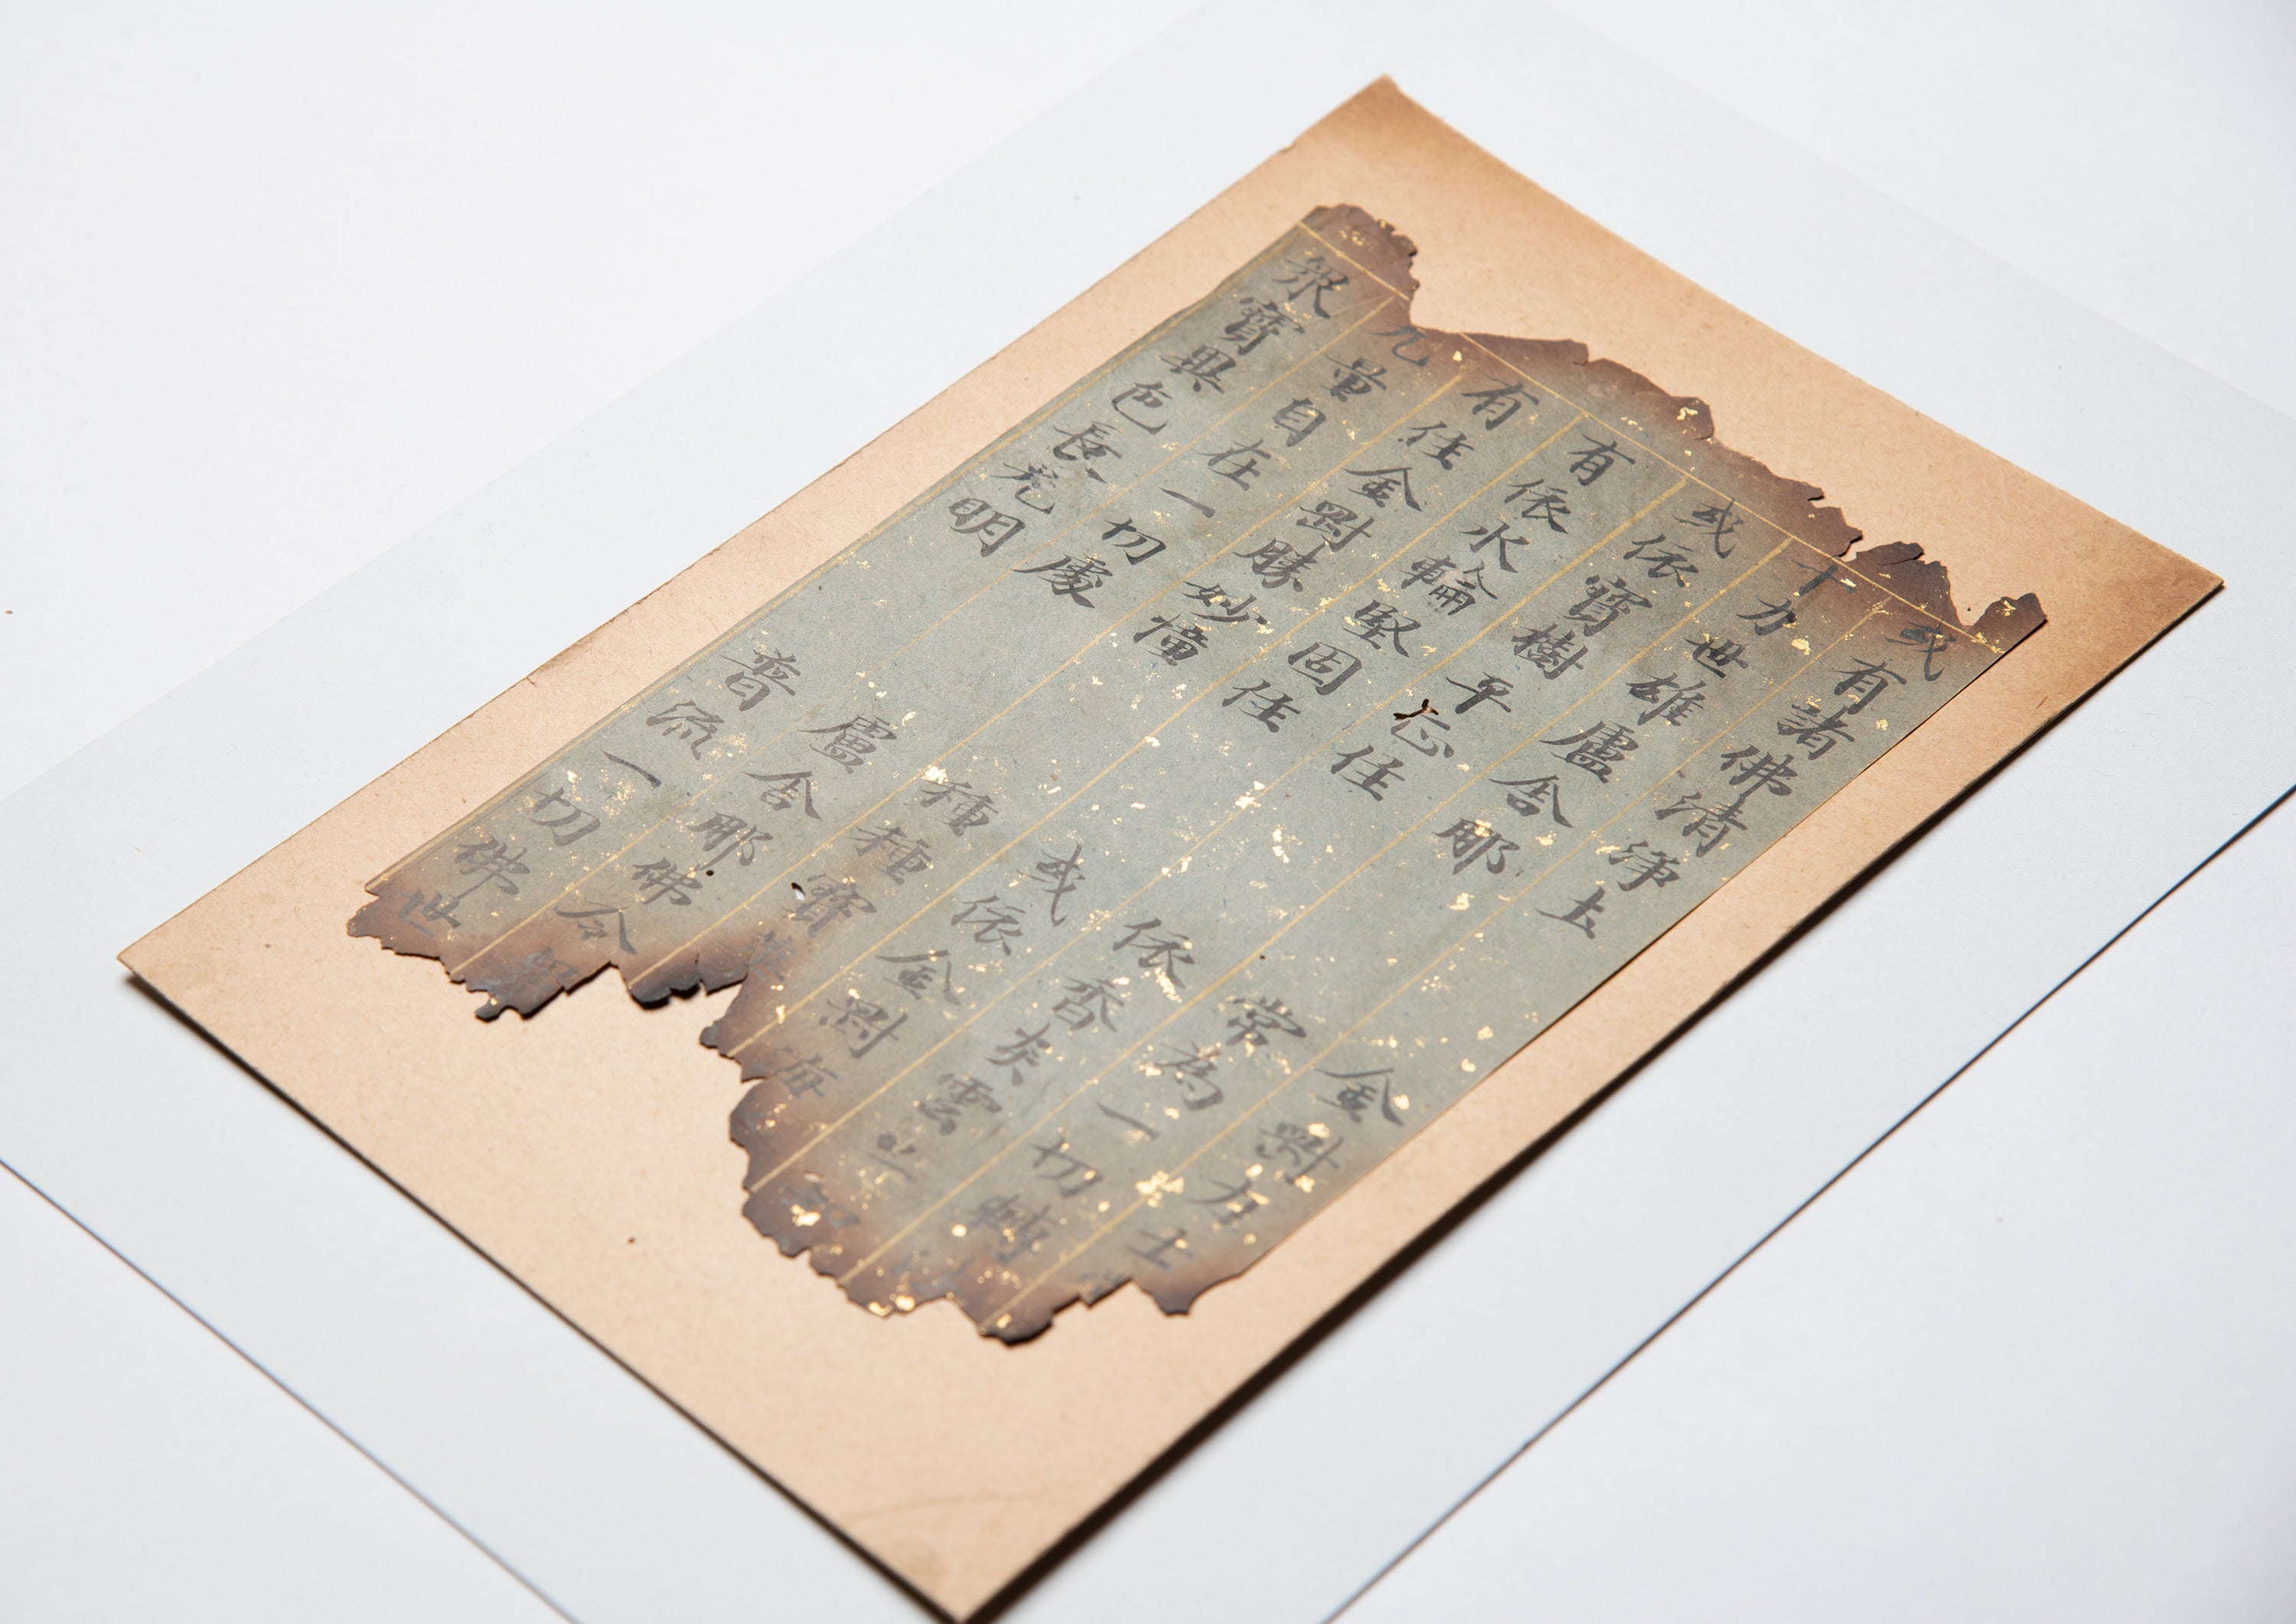 或有諸佛清淨土 金剛力士
十力世雄盧舍那 常為一切轉
或依寶樹平正住 依香炎雲亦
有依水輪堅固住 或依金剛海
有住金剛勝妙幢 種種寶華
无量自在一切處 盧舍那佛令
衆寶異色長光明 普流一切佛世